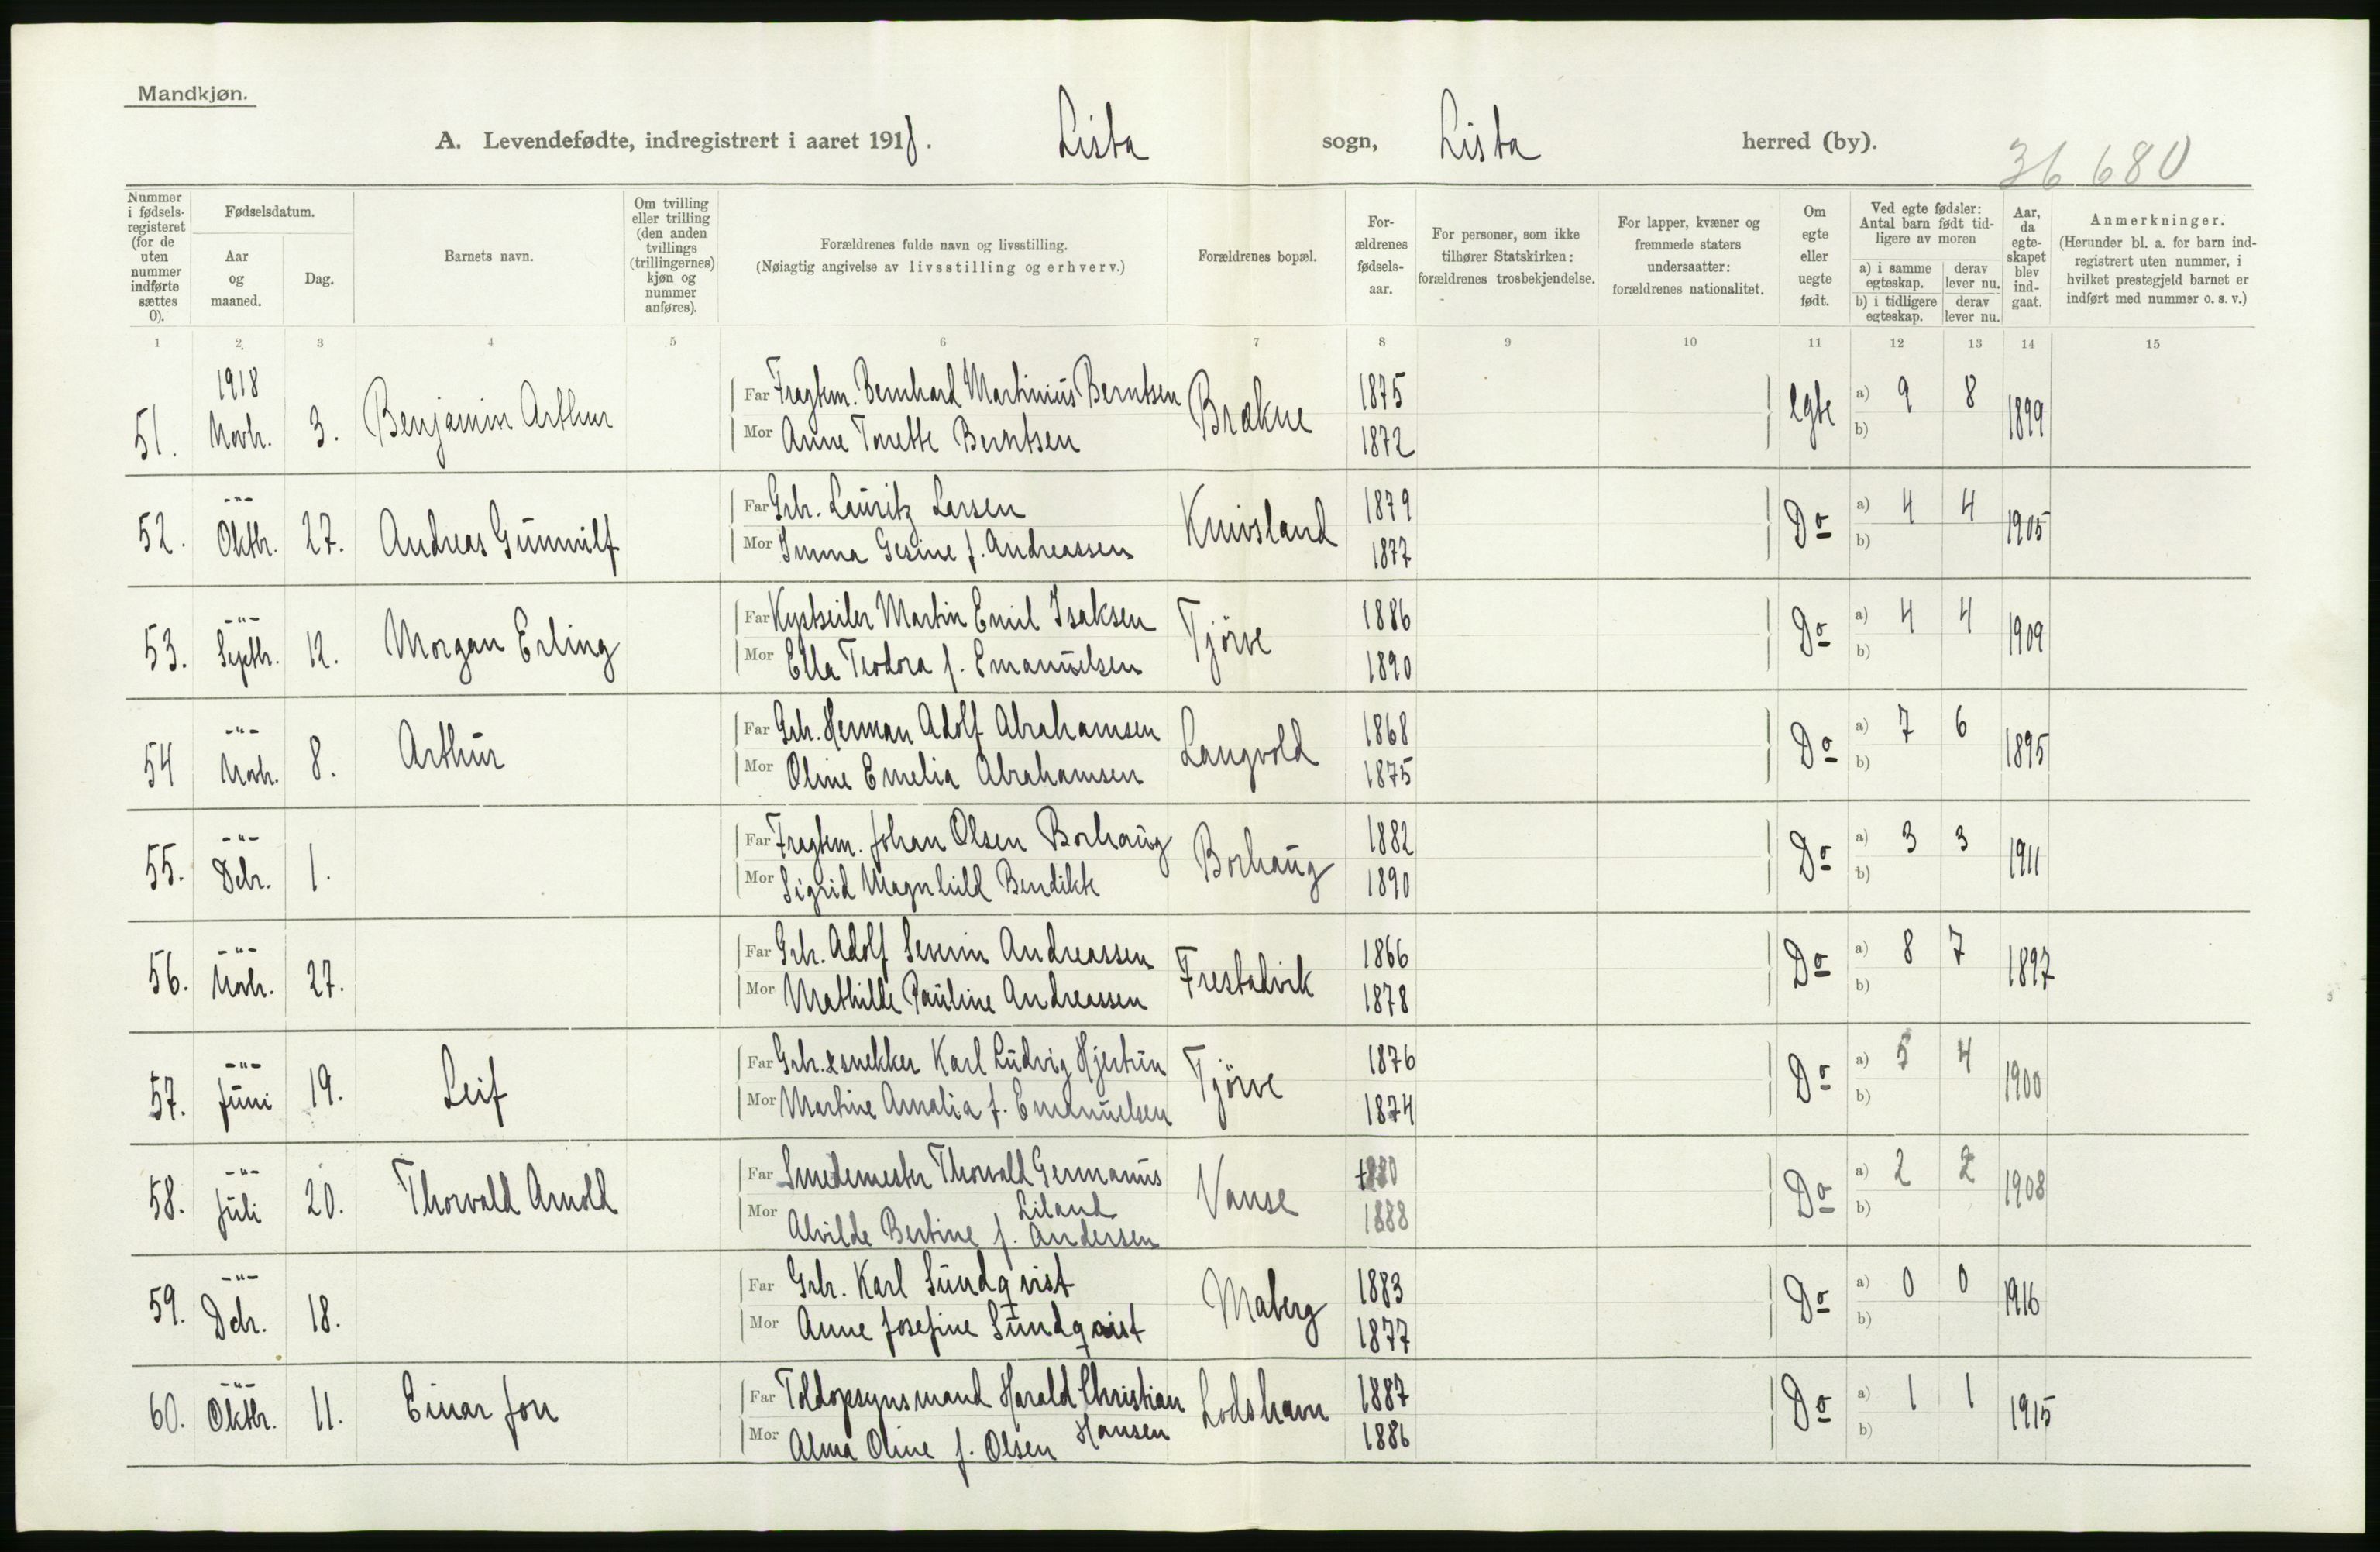 Mandkjøn.
A. Levendefødte, indregistrert i aaret 1918. Lista sogn, Lista herred (by).
36 680
Nummer i fødsels-registeret (for de uten nummer indførte sættes 0).
Fødselsdatum.
Aar og maaned.
Dag.
Barnets navn.
Om tvilling eller trilling (den anden tvillings (trillingernes) kjøn og nummer anføres).
Forældrenes fulde navn og livsstilling.
(Nøiagtig angivelse av livsstilling og erhverv.)
Forældrenes bopæl.
For-ældrenes fødsels-aar.
For personer, som ikke tilhører Statskirken: forældrenes trosbekjendelse.
For lapper, kvæner og fremmede staters undersaatter: forældrenes nationalitet.
Om egte eller uegte født.
Ved egte fødsler: Antal barn født tid-ligere av moren
a) i samme egteskap. derav lever nu.
b) i tidligere egteskap. derav lever nu.
Aar, da egte-skapet blev ind-gaat.
Anmerkninger.
(Herunder bl. a. for barn ind-registrert uten nummer, i hvilket prestegjeld barnet er indført med nummer o. s. v.)
1 2 3 4 5 6 7 8 9 10 11 12 13 14 15
51. 1918 Novbr. 3. Benjamin Arthur Far Fragtem. Bernhard Martinius Berntsen Brækne 1875 Egte a) 9 8 1899
Mor Anne Tonette Berntsen 1872 b)
52. -"- Oktbr. 27. Andreas Gunnulf Far Grbr. Lauritz Larsen Knivsland 1879 Do a) 4 4 1905
Mor Imma Gesine f. Andreassen 1877 b)
53. -"- Septbr. 12. Morgan Erling Far Kystseiler Martin Emil Isaksen Tjörve 1886 Do a) 4 4 1909
Mor Ella Teodora f. Emanuelsen 1890 b)
54 -"- Novbr. 8. Arthur Far Grbr. Herman Adolf Abrahamsen Langvold 1868 Do a) 7 6 1895
Mor Oline Emelia Abrahamsen 1875 b)
55. -"- Debr. 1. Far Fragtem. Johan Olsen Borhaug Borhaug 1882 Do a) 3 3 1911
Mor Sigrid Magnhild Bendikte 1890 b)
56. -"- Novbr. 27. Far Grbr. Adolf Severin Andreassen Frestadvik 1866 Do a) 8 7 1897
Mor Mathilde Pauline Andreassen 1878 b)
57. -"- Juni 19. Leif Far Grbr. & snekker Karl Ludvig Hjertün Tjörve 1876 Do a) 5 4 1900
Mor Martine Amalia f. Emanuelsen 1874 b)
58. -"- Juli 20. Thorvald Arnold Far Smedemester Thorvald Germanus Vanse 1880 Do a) 2 2 1908
Liland
Mor Alvilde Bertine f. Andersen 1888 b)
59. -"- Debr. 18. Far Grbr. Karl Sundqvist Maberg 1883 Do a) 0 0 1916
Mor Anne Josefine Sundqvist 1877 b)
60. -"- Oktbr. 11. Einar Jon Far Toldopsynsmand Harald Christian Lodshavn 1887 Do a) 1 1 1915
Hansen
Mor Alma Oline f. Olsen 1886 b)